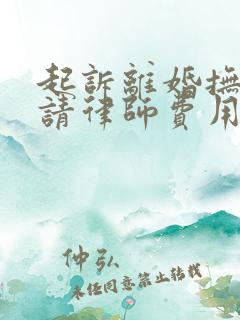 起訴離婚撫
請律師費用
仲弘
未经同意禁止转载